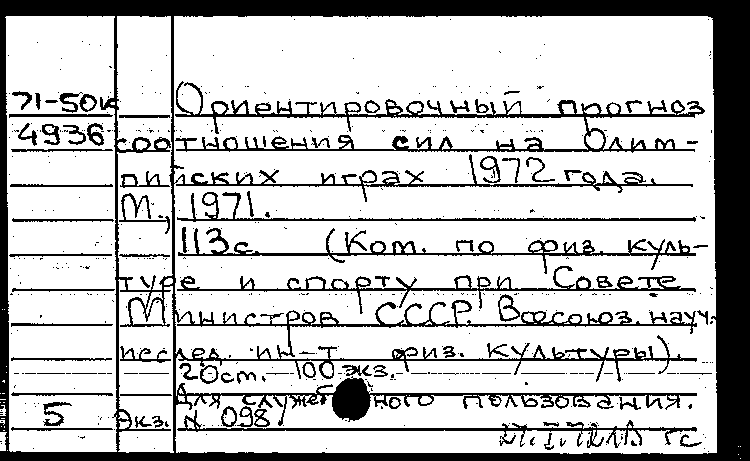 71-50к Ориентировочный прогноз
4936 соотношения сил на Олим-
пийских играх 1972 года.
М., 1971.
113с. (Ком. по физ. куль-
туре и спорту при Совете
Министров СССР. Всесоюз. науч.-
исслед. ин-т физ. культуры).
20ст. 100 экз.
Для служебного пользования.
5 Экз. N 098
гс